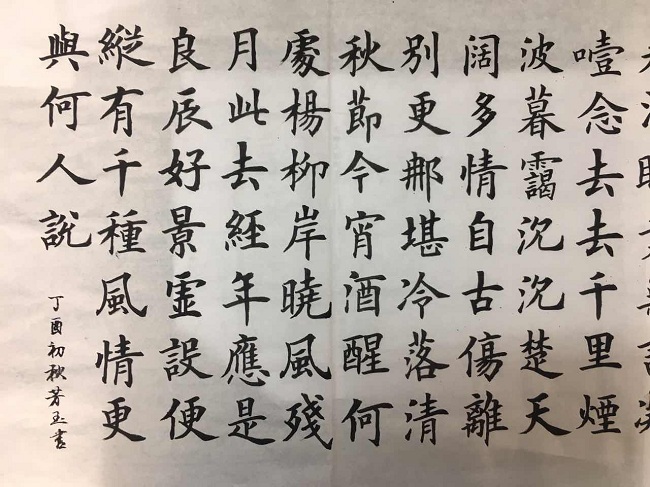 噎念去去千里煙
波暮靄沉沉楚天
阔多情自古傷離
別更那堪冷落清
秋節今宵酒醒何
處楊柳岸曉風殘
月此去經年應是
良辰好景虛設便
縱有千種風情更
與何人說
丁酉初秋芳玉書